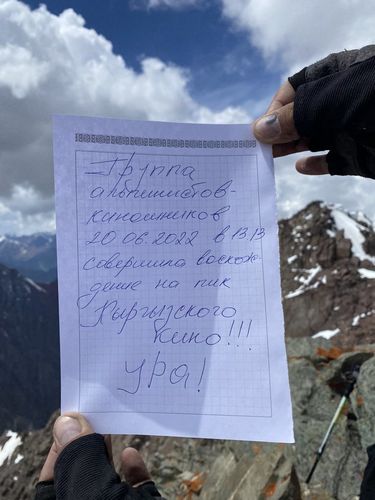 Группа
альпинистов-
киношников
20.06.2022 в 13.13
совершила восхож-
дение на пик
Кыргызского
кино!!!
УРА!